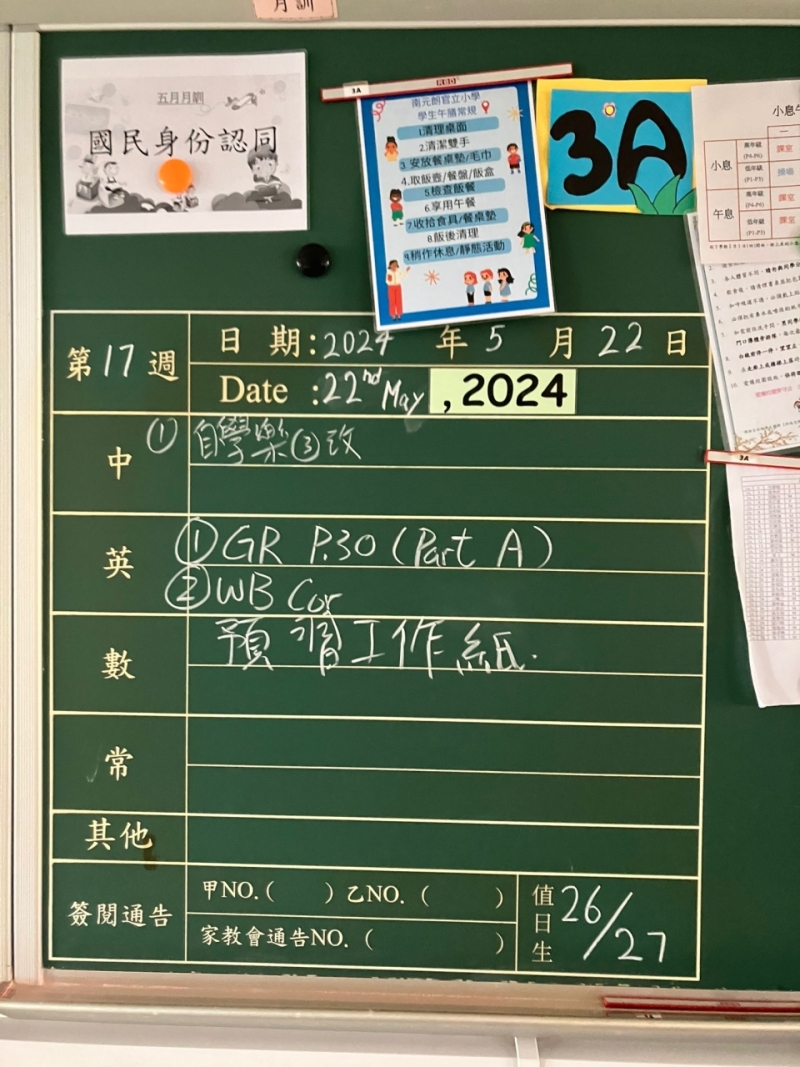 月訓
五月月訓
國民身份認同
3A
南元朗官立小學
學生午膳常規
1.清理桌面
2.清潔雙手
3.安放餐桌墊/毛巾
4.取飯壺/餐盤/飯盒
5.檢查飯餐
6.享用午餐
7.收拾食具/餐桌墊
8.飯後清理
9.稍作休息/靜態活動
3A
小息
高年級
(P4-P6)
課室
低年級
(P1-P3)
操場
午息
高年級
(P4-P6)
課室
低年級
(P1-P3)
課室
3A
第17週
日期:2024年5月22日
Date :22nd May, 2024
中
① 自學樂③改
英
①GR P.30 (Part A)
②WB Cor
數
預習工作紙.
常
其他
簽閱通告
甲NO.( )乙NO.( )
家教會通告NO.( )
值日生
26/27